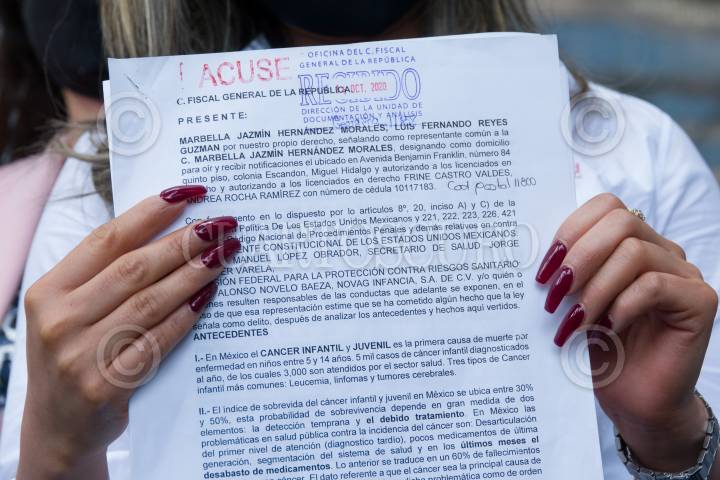 ACUSE
OFICINA DEL C. FISCAL
GENERAL DE LA REPÚBLICA
RECIBIDO
OCT. 2020
DIRECCIÓN DE LA UNIDAD DE
DOCUMENTACIÓN Y ANÁLISIS
C. FISCAL GENERAL DE LA REPÚBLICA.
PRESENTE:
MARBELLA JAZMÍN HERNÁNDEZ MORALES, LUIS FERNANDO REYES
GUZMAN por nuestro propio derecho, señalando como representante común a la
C. MARBELLA JAZMÍN HERNÁNDEZ MORALES, designando como domicilio
para oír y recibir notificaciones el ubicado en Avenida Benjamin Franklin, número 84
quinto piso, colonia Escandon, Miguel Hidalgo y autorizando a los licenciados en
derecho y autorizando a los licenciados en derecho FRINE CASTRO VALDES,
ANDREA ROCHA RAMÍREZ con número de cédula 10117183. Cod postal 11800
en lo dispuesto por lo articulos 8º, 20, inciso A) y C) de la
Política De Los Estados Unidos Mexicanos y 221, 222, 223, 226, 421
Código Nacional de Procedimientos Penales y demás relativos en contra
CONSTITUCIONAL DE LOS ESTADOS UNIDOS MEXICANOS.
MANUEL LÓPEZ OBRADOR, SECRETARIO DE SALUD JORGE
VARELA,
FEDERAL PARA LA PROTECCIÓN CONTRA RIESGOS SANITARIO
ALONSO NOVELO BAEZA, NOVAG INFANCIA, S.A. DE C.V. y/o quién o
resulten responsables de las conductas que adelante se exponen, en el
de que esa representación estime que se ha cometido algún hecho que la ley
señala como delito, después de analizar los antecedentes y hechos aquí vertidos.
ANTECEDENTES
I.- En México el CANCER INFANTIL y JUVENIL es la primera causa de muerte por
enfermedad en niños entre 5 y 14 años. 5 mil casos de cáncer infantil diagnosticados
al año, de los cuales 3,000 son atendidos por el sector salud. Tres tipos de Cancer
infantil más comunes: Leucemia, linfomas y tumores cerebrales.
II.- El indice de sobrevida del cáncer infantil y juvenil en México se ubica entre 30%
y 50%, esta probabilidad de sobrevivencia depende en gran medida de dos
elementos: la detección temprana y el debido tratamiento. En México las
problemáticas en salud pública contra la incidencia del cáncer son: Desarticulación
del primer nivel de atención (diagnostico tardio), pocos medicamentos de última
generación, segmentación del sistema de salud y en los últimos meses el
desabasto de medicamentos. Lo anterior se traduce en un 60% de fallecimientos
cáncer. El dato referente a que el cáncer sea la principal causa de
problemática como de orden